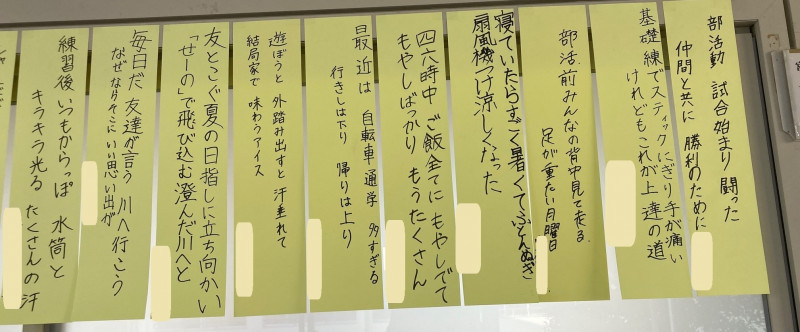 部活動 試合始まり 闘った
仲間と共に 勝利のために
基礎練でスティックにぎり手が痛い
けれどもこれが上達の道
部活前みんなの背中見て走る
足が重たい月曜日
寝ていたらすごく暑くてふとんぬぎ
扇風機つけ涼しくなった
四六時中 ご飯全てに もやしでて
もやしばっかり もうたくさん
最近は 自転車通学 多すぎる
行きしは下り 帰りは上り
遊ぼうと 外踏み出すと 汗垂れて
結局家で 味わうアイス
友とこぐ夏の日指しに立ち向かい
「せーの」で飛び込む澄んだ川へと
毎日だ 友達が言う 川へ行こう
なぜならそこにいい思い出が
練習後 いつもからっぽ 水筒と
キラキラ光る たくさんの汗